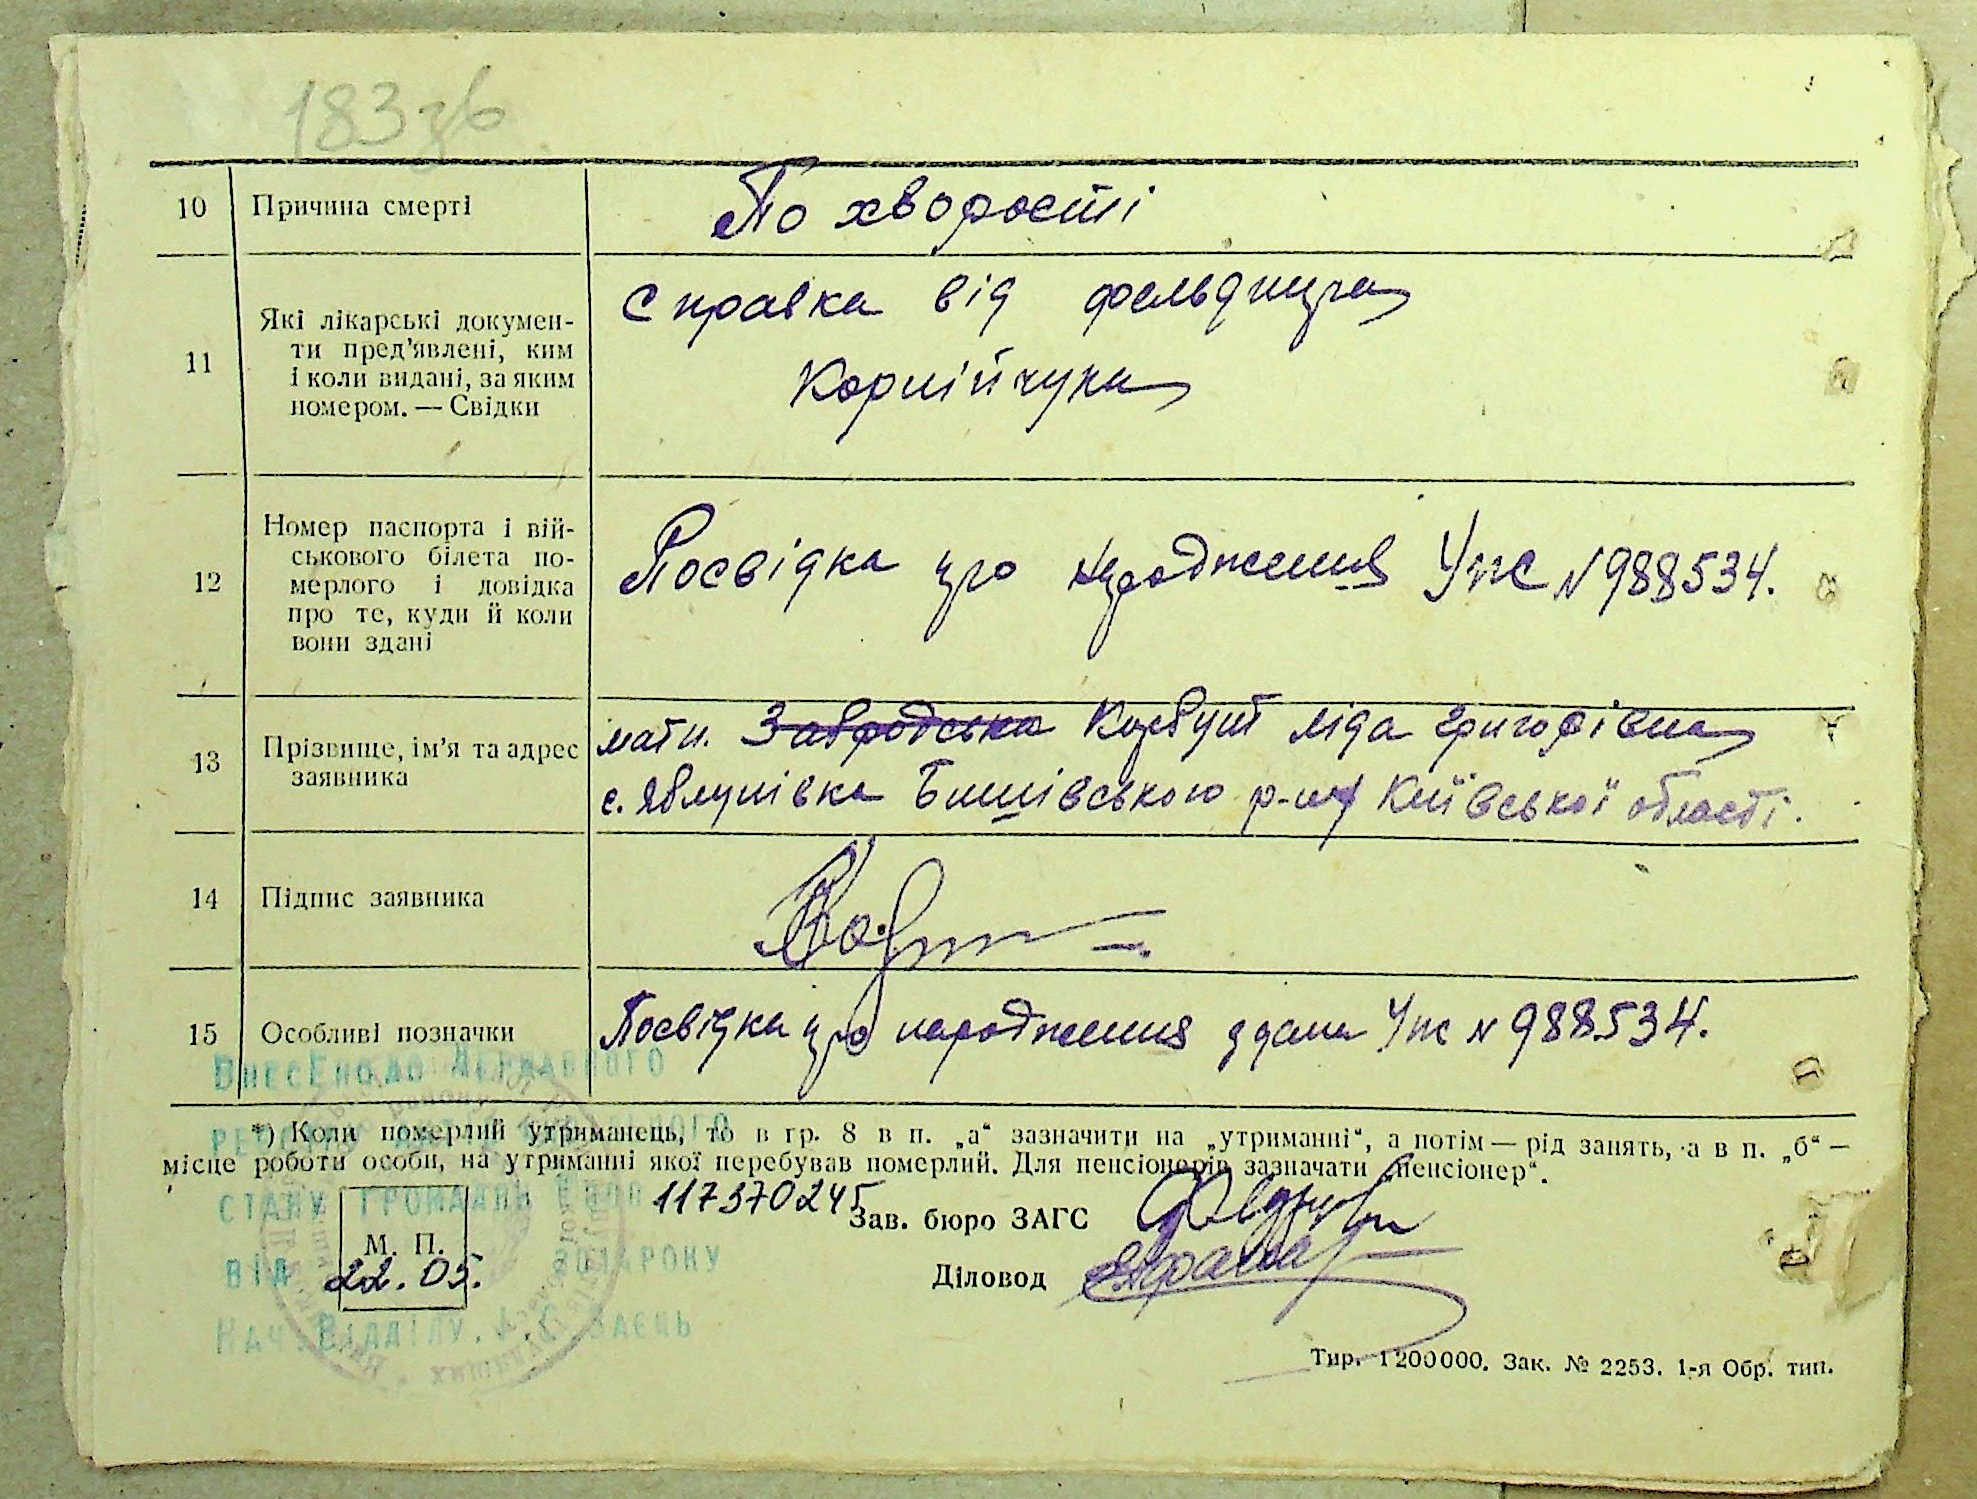 183 зв
10 Причина смерті По хворості
11 Які лікарські докумен-
ти пред'явлені, ким
і коли видані, за яким
номером. — Свідки
Справка від фельдшера
Корнійчука
12 Номер паспорта і вій-
ськового білета по-
мерлого і довідка
про те, куди й коли
вони здані
Посвідка про народження Упс N 988534.
13 Прізвище, ім'я та адрес
заявника
мати. Завродська Корвут Ліда Григорівна
с. Яблунівка Бишівського р-ну Київської області.
14 Підпис заявника
15 Особливі позначки Посвідка про народження здана Упс N 988534.
Внесено до Державного
*) Коли померлий утриманець, то в гр. 8 в п. „а“ зазначити на „утриманні“, а потім — рід занять, а в п. „б“ —
місце роботи особи, на утриманні якої перебував померлий. Для пенсіонерів зазначати „пенсіонер“.
стану громадян
117370245
Зав. бюро ЗАГС
М. П.
від 22.05. року
Діловод
Нач. відділу Заєць
Тир. 1200000. Зак. № 2253. 1-я Обр. тип.